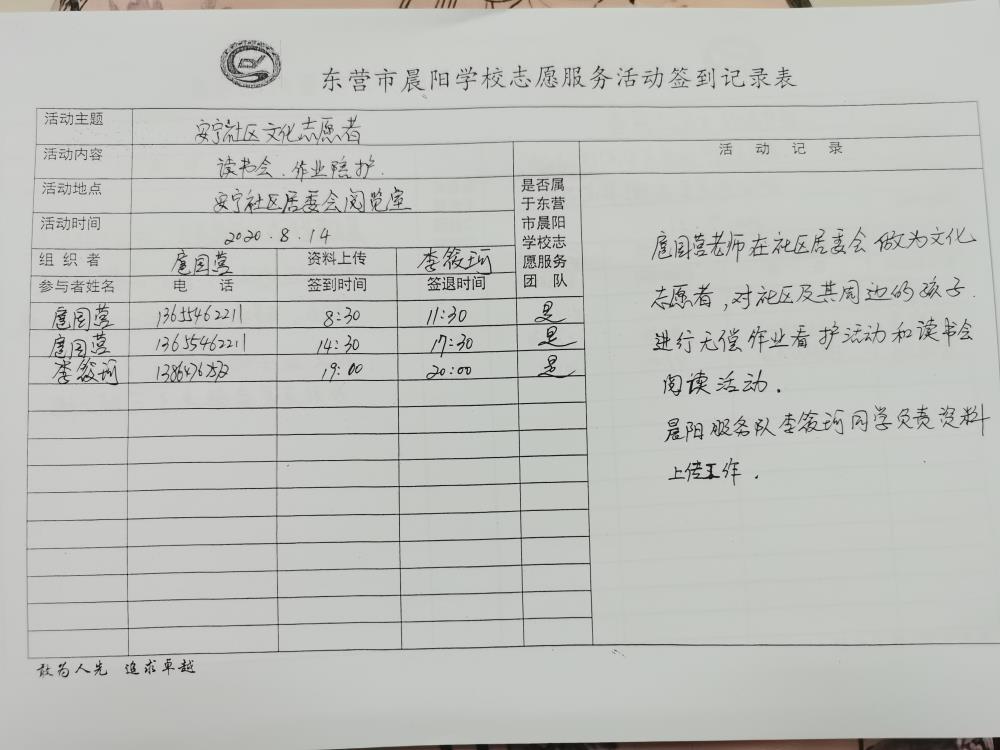 东营市晨阳学校志愿服务活动签到记录表
活动主题 安宁社区文化志愿者
活动内容 读书会、作业陪护.
活动地点 安宁社区居委会阅览室
活动时间 2020.8.14
组织者 扈国营 资料上传 李筱珂
参与者姓名 电话 签到时间 签退时间
是否属
于东营
市晨阳
学校志
愿服务
团队
扈国营 13655462211 8:30 11:30 是
扈国营 13655462211 14:30 17:30 是
李筱珂 19:00 20:00 是
活动记录
扈国营老师在社区居委会做为文化
志愿者,对社区及其周边的孩子
进行无偿作业看护活动和读书会
阅读活动.
晨阳服务队李筱珂同学负责资料
上传工作.
敢为人先 追求卓越